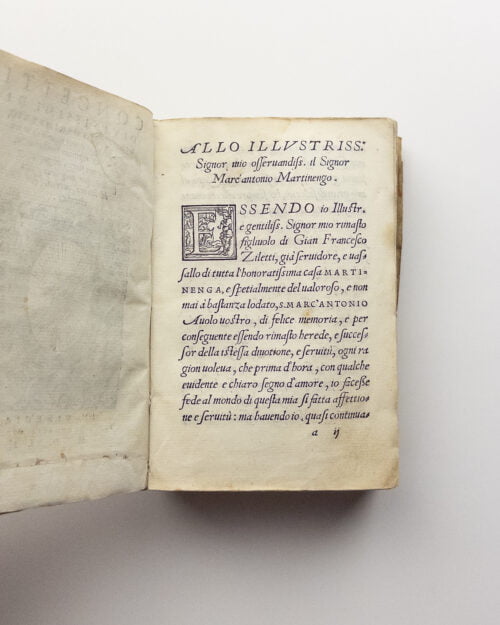 CONCETTI
ALLO ILLVSTRISS.
Signor mio osseruandiss. il Signor
Marc'antonio Martinengo.
ESSENDO io Illustr.
e gentiliss. Signor mio rimasto
figliuolo di Gian Francesco
Ziletti, già seruidore, e uas-
sallo di tutta l'honoratissima casa MARTI-
NENGA, e spetialmente del ualoroso, e non
mai à bastanza lodato, S. MARC'ANTONIO
Auolo uostro, di felice memoria, e per
conseguente essendo rimasto herede, e succes-
sor della istessa diuotione, e seruitù, ogni ra
gion uoleua, che prima d'hora, con qualche
euidente e chiaro segno d'amore, io facesse
fede al mondo di questa mia sì fatta affettio-
ne e seruitù: ma hauendo io, quasi continua-
a ij